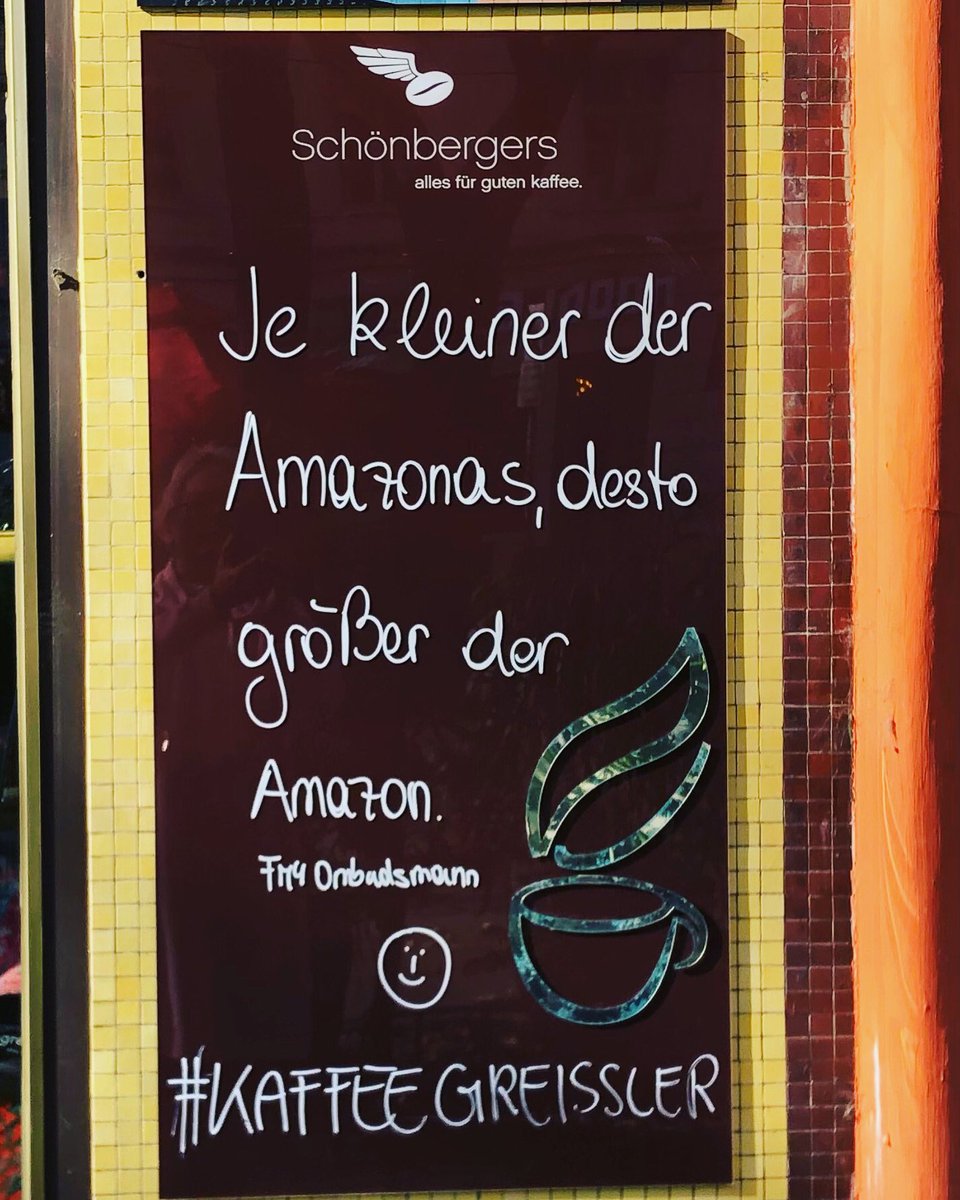 Schönbergers
alles für guten kaffee.
Je kleiner der
Amazonas, desto
größer der
Amazon.
FM4 Ombudsmann
#KAFFEEGREISSLER